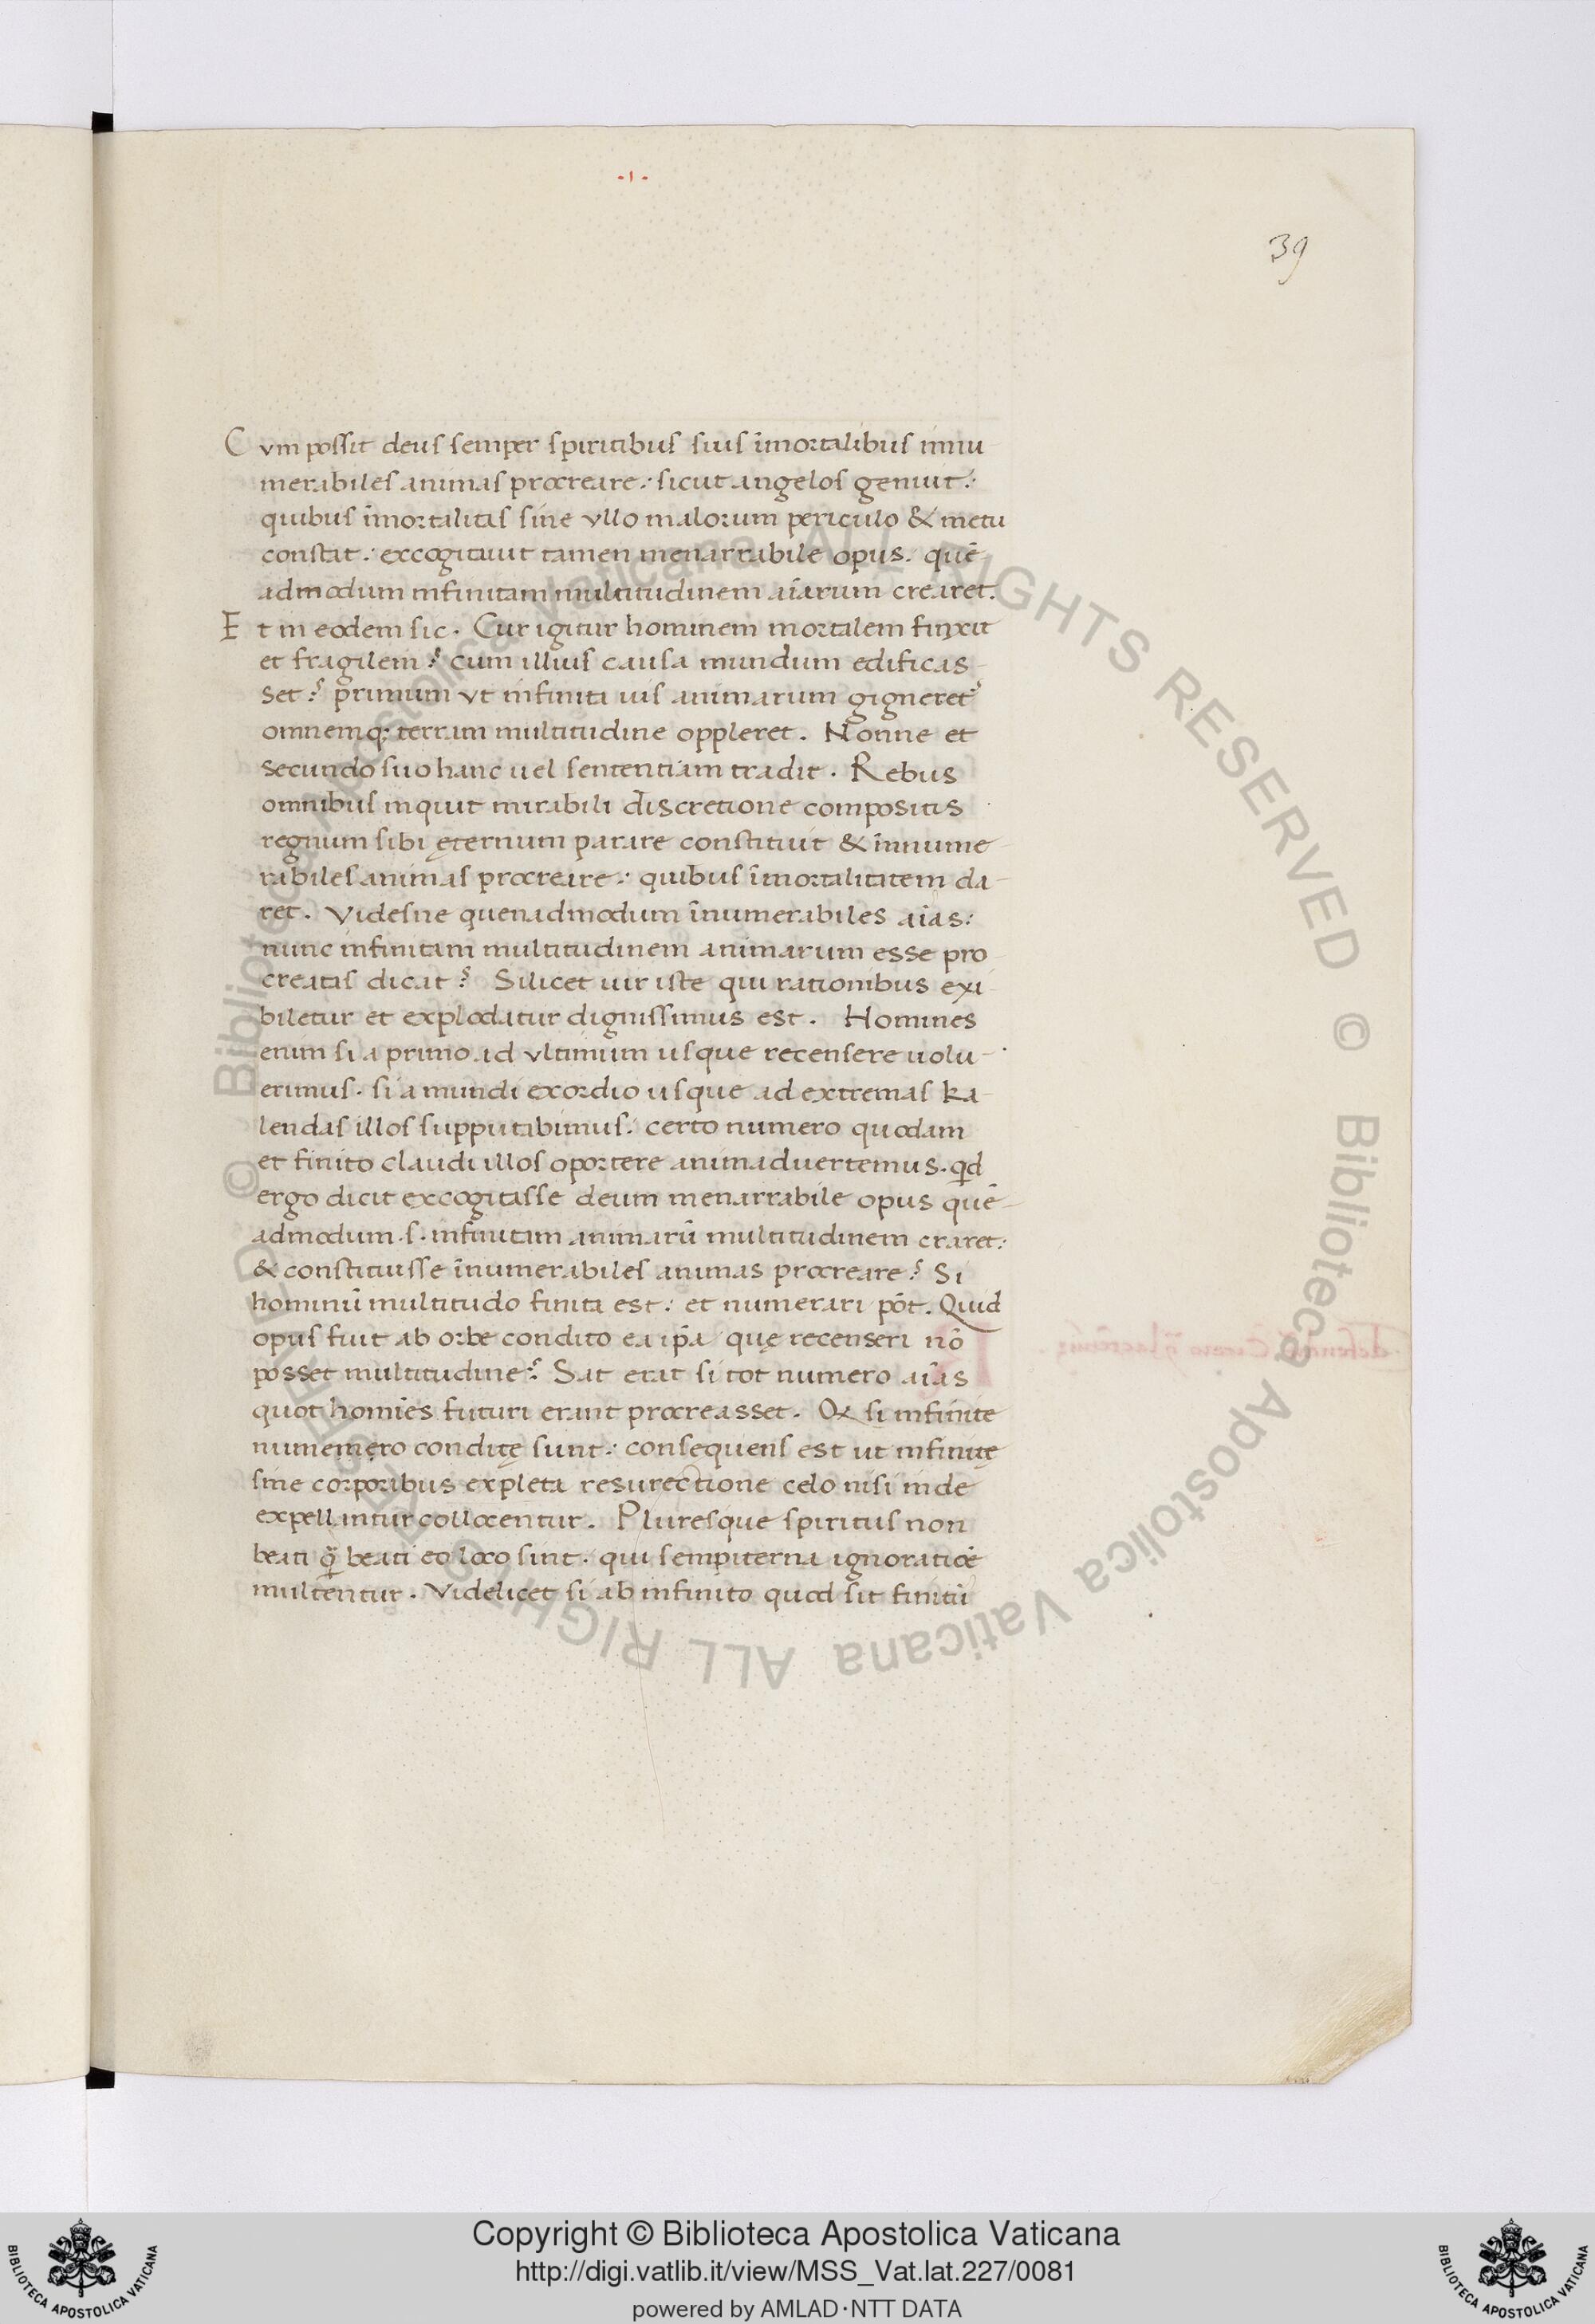 -1-
39
Cvm possit deus semper spiritibus suis īmortalibus innu
merabiles animas procreare: sicut angelos genuit:
quibus īmortalitas sine vllo malorum periculo & metu
constat: excogitauit tamen inenarrabile opus. quē-
admodum infinitam multitudinem aīarum crearet.
Et in eodem sic. Cur igitur hominem mortalem finxit
et fragilem? cum illius causa mundum edificas-
set? primum vt infinita uis animarum gigneret?
omnemq; terram multitudine oppleret. Nonne et
secundo suo hanc uel sententiam tradit. Rebus
omnibus inquit mirabili discretione compositis
regnum sibi ęternum parare constituit & īnnume-
rabiles animas procreare: quibus īmortalitatem da-
ret. Videsne quenadmodum īnumerabiles aīas:
nunc infinitam multitudinem animarum esse pro
creatas dicat? Silicet uir iste qui rationibus exi-
biletur et explodatur dignissimus est. Homines
enim si a primo ad vltimum usque recensere uolu-
erimus. si a mundi exordio usque ad extremas ka-
lendas illos supputabimus. certo numero quodam
et finito claudi illos oportere animaduertemus. qd
ergo dicit excogitasse deum inenarrabile opus quē-
admodum .s. infinitam animarū multitudinem craret:
& constituisse īnumerabiles animas procreare? Si
hominū multitudo finita est: et numerari pōt. Quid
opus fuit ab orbe condito ea ip̄a quę recenseri nō
posset multitudine? Sat erat si tot numero aīas
quot homīes futuri erant procreasset. Qđ si infinite
numemero conditę sunt: consequens est ut infinitę
sine corporibus expleta resurectione celo nisi inde
expellantur collocentur. Pluresque spiritus non
beati q̄ beati eo loco sint. qui sempiterna ignoratiōe
multentur. Videlicet si ab infinito quod sit finitū
© Biblioteca Apostolica Vaticana ALL RIGHTS RESERVED
© Biblioteca Apostolica Vaticana ALL RIGHTS RESERVED
Copyright © Biblioteca Apostolica Vaticana
http://digi.vatlib.it/view/MSS_Vat.lat.227/0081
powered by AMLAD·NTT DATA
BIBLIOTECA APOSTOLICA VATICANA
BIBLIOTECA APOSTOLICA VATICANA